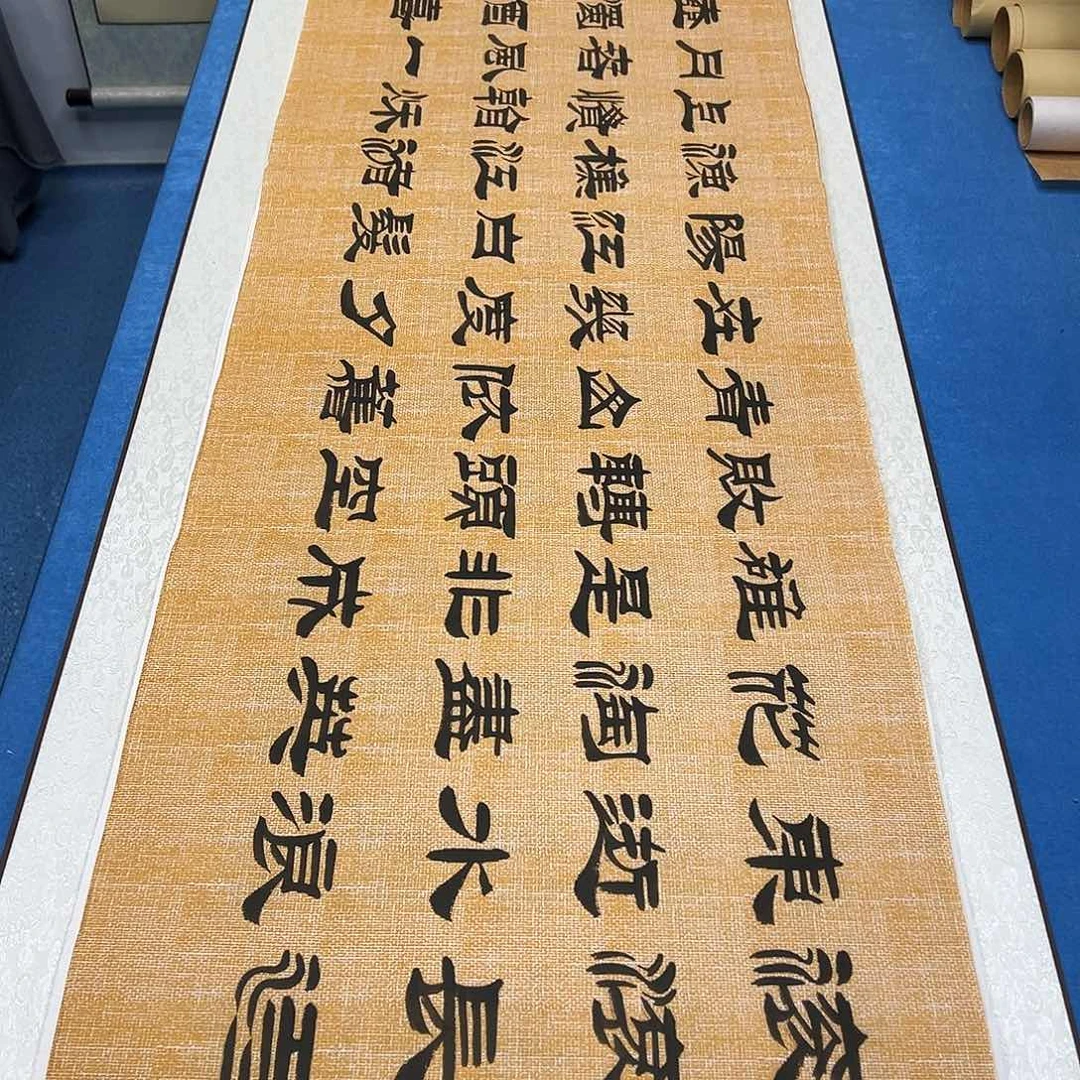 滾滾長江
東逝水浪
花淘盡英
雄是非成
敗轉頭空
青山依舊
在幾度夕
陽紅白髮
漁樵江渚
上慣看秋
月春風一
壺濁酒喜